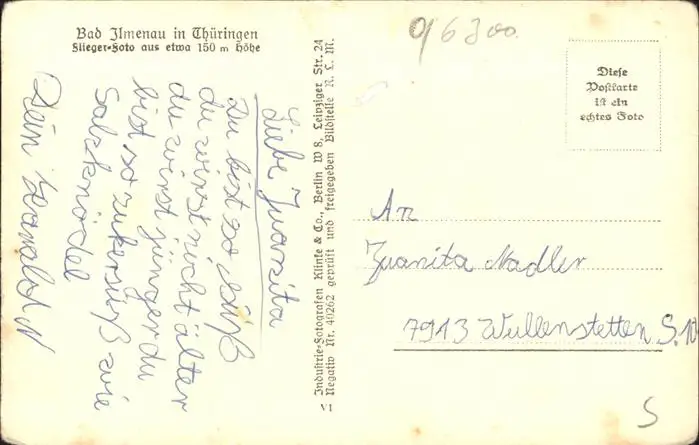 Bad Ilmenau in Thüringen
Flieger-Foto aus etwa 150 m Höhe
96300
Diese
Postkarte
ist ein
echtes Foto
Liebe Juanita
Du bist so süß
du wirst nicht älter
du wirst jünger du
bist so zukersüß wie
Salzknödel
Dein Harald N
Industrie-Fotografen Klinke & Co., Berlin W 8, Leipziger Str. 24
Negativ Nr. 40262 geprüft und freigegeben Bildstelle R. L. M.
VI
An
Juanita Nadler
7913 Wullenstetten
S